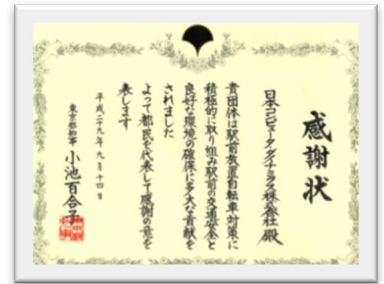 感謝状
日本コンピュータ・ダイナミクス株式会社 殿
貴団体は駅前放置自転車対策に
積極的に取り組み駅前の交通安全と
良好な環境の確保に多大な貢献を
されました
よって都民を代表して感謝の意を
表します
平成二十九年九月十四日
東京都知事 小池百合子